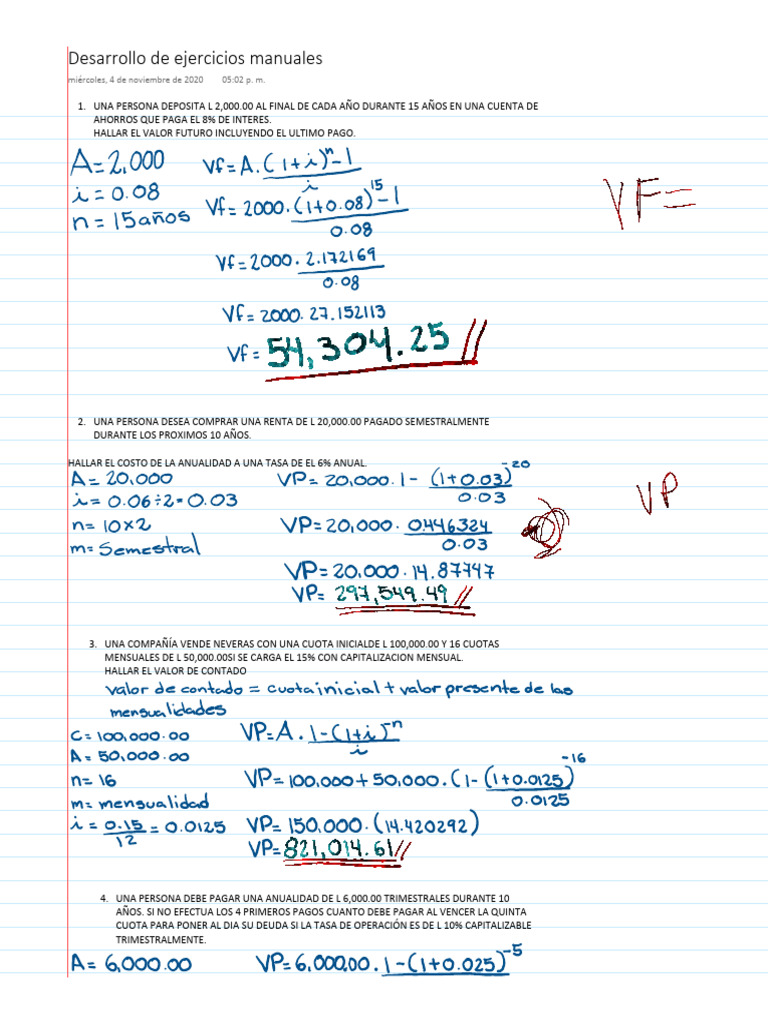 Desarrollo de ejercicios manuales
miércoles, 4 de noviembre de 2020 05:02 p. m.
1. UNA PERSONA DEPOSITA L 2,000.00 AL FINAL DE CADA AÑO DURANTE 15 AÑOS EN UNA CUENTA DE
AHORROS QUE PAGA EL 8% DE INTERES.
HALLAR EL VALOR FUTURO INCLUYENDO EL ULTIMO PAGO.
A=2,000
i=0.08
n=15años
Vf=A.(1+i)^n-1
i
Vf=2000.(1+0.08)^15-1
0.08
Vf=2000.2.172169
0.08
Vf=2000.27.152113
Vf=54,304.25//
VF=
2. UNA PERSONA DESEA COMPRAR UNA RENTA DE L 20,000.00 PAGADO SEMESTRALMENTE
DURANTE LOS PROXIMOS 10 AÑOS.
HALLAR EL COSTO DE LA ANUALIDAD A UNA TASA DE EL 6% ANUAL.
A=20,000
i=0.06÷2=0.03
n=10x2
m=Semestral
VP=20,000.1-(1+0.03)^-20
0.03
VP=20,000.0.446324
0.03
VP=20,000.14.87747
VP=297,549.49//
VP
3. UNA COMPAÑÍA VENDE NEVERAS CON UNA CUOTA INICIALDE L 100,000.00 Y 16 CUOTAS
MENSUALES DE L 50,000.00SI SE CARGA EL 15% CON CAPITALIZACION MENSUAL.
HALLAR EL VALOR DE CONTADO
valor de contado = cuota inicial + valor presente de las
mensualidades
C=100,000.00
A=50,000.00
n=16
m=mensualidad
i=0.15=0.0125
12
VP=A.1-(1+i)^-n
i
VP=100,000+50,000.(1-(1+0.0125)^-16
0.0125
VP=150,000.(14.420292)
VP=821,014.61//
4. UNA PERSONA DEBE PAGAR UNA ANUALIDAD DE L 6,000.00 TRIMESTRALES DURANTE 10
AÑOS. SI NO EFECTUA LOS 4 PRIMEROS PAGOS CUANTO DEBE PAGAR AL VENCER LA QUINTA
CUOTA PARA PONER AL DIA SU DEUDA SI LA TASA DE OPERACIÓN ES DE L 10% CAPITALIZABLE
TRIMESTRALMENTE.
A=6,000.00
VP=6,000.00.1-(1+0.025)^-5